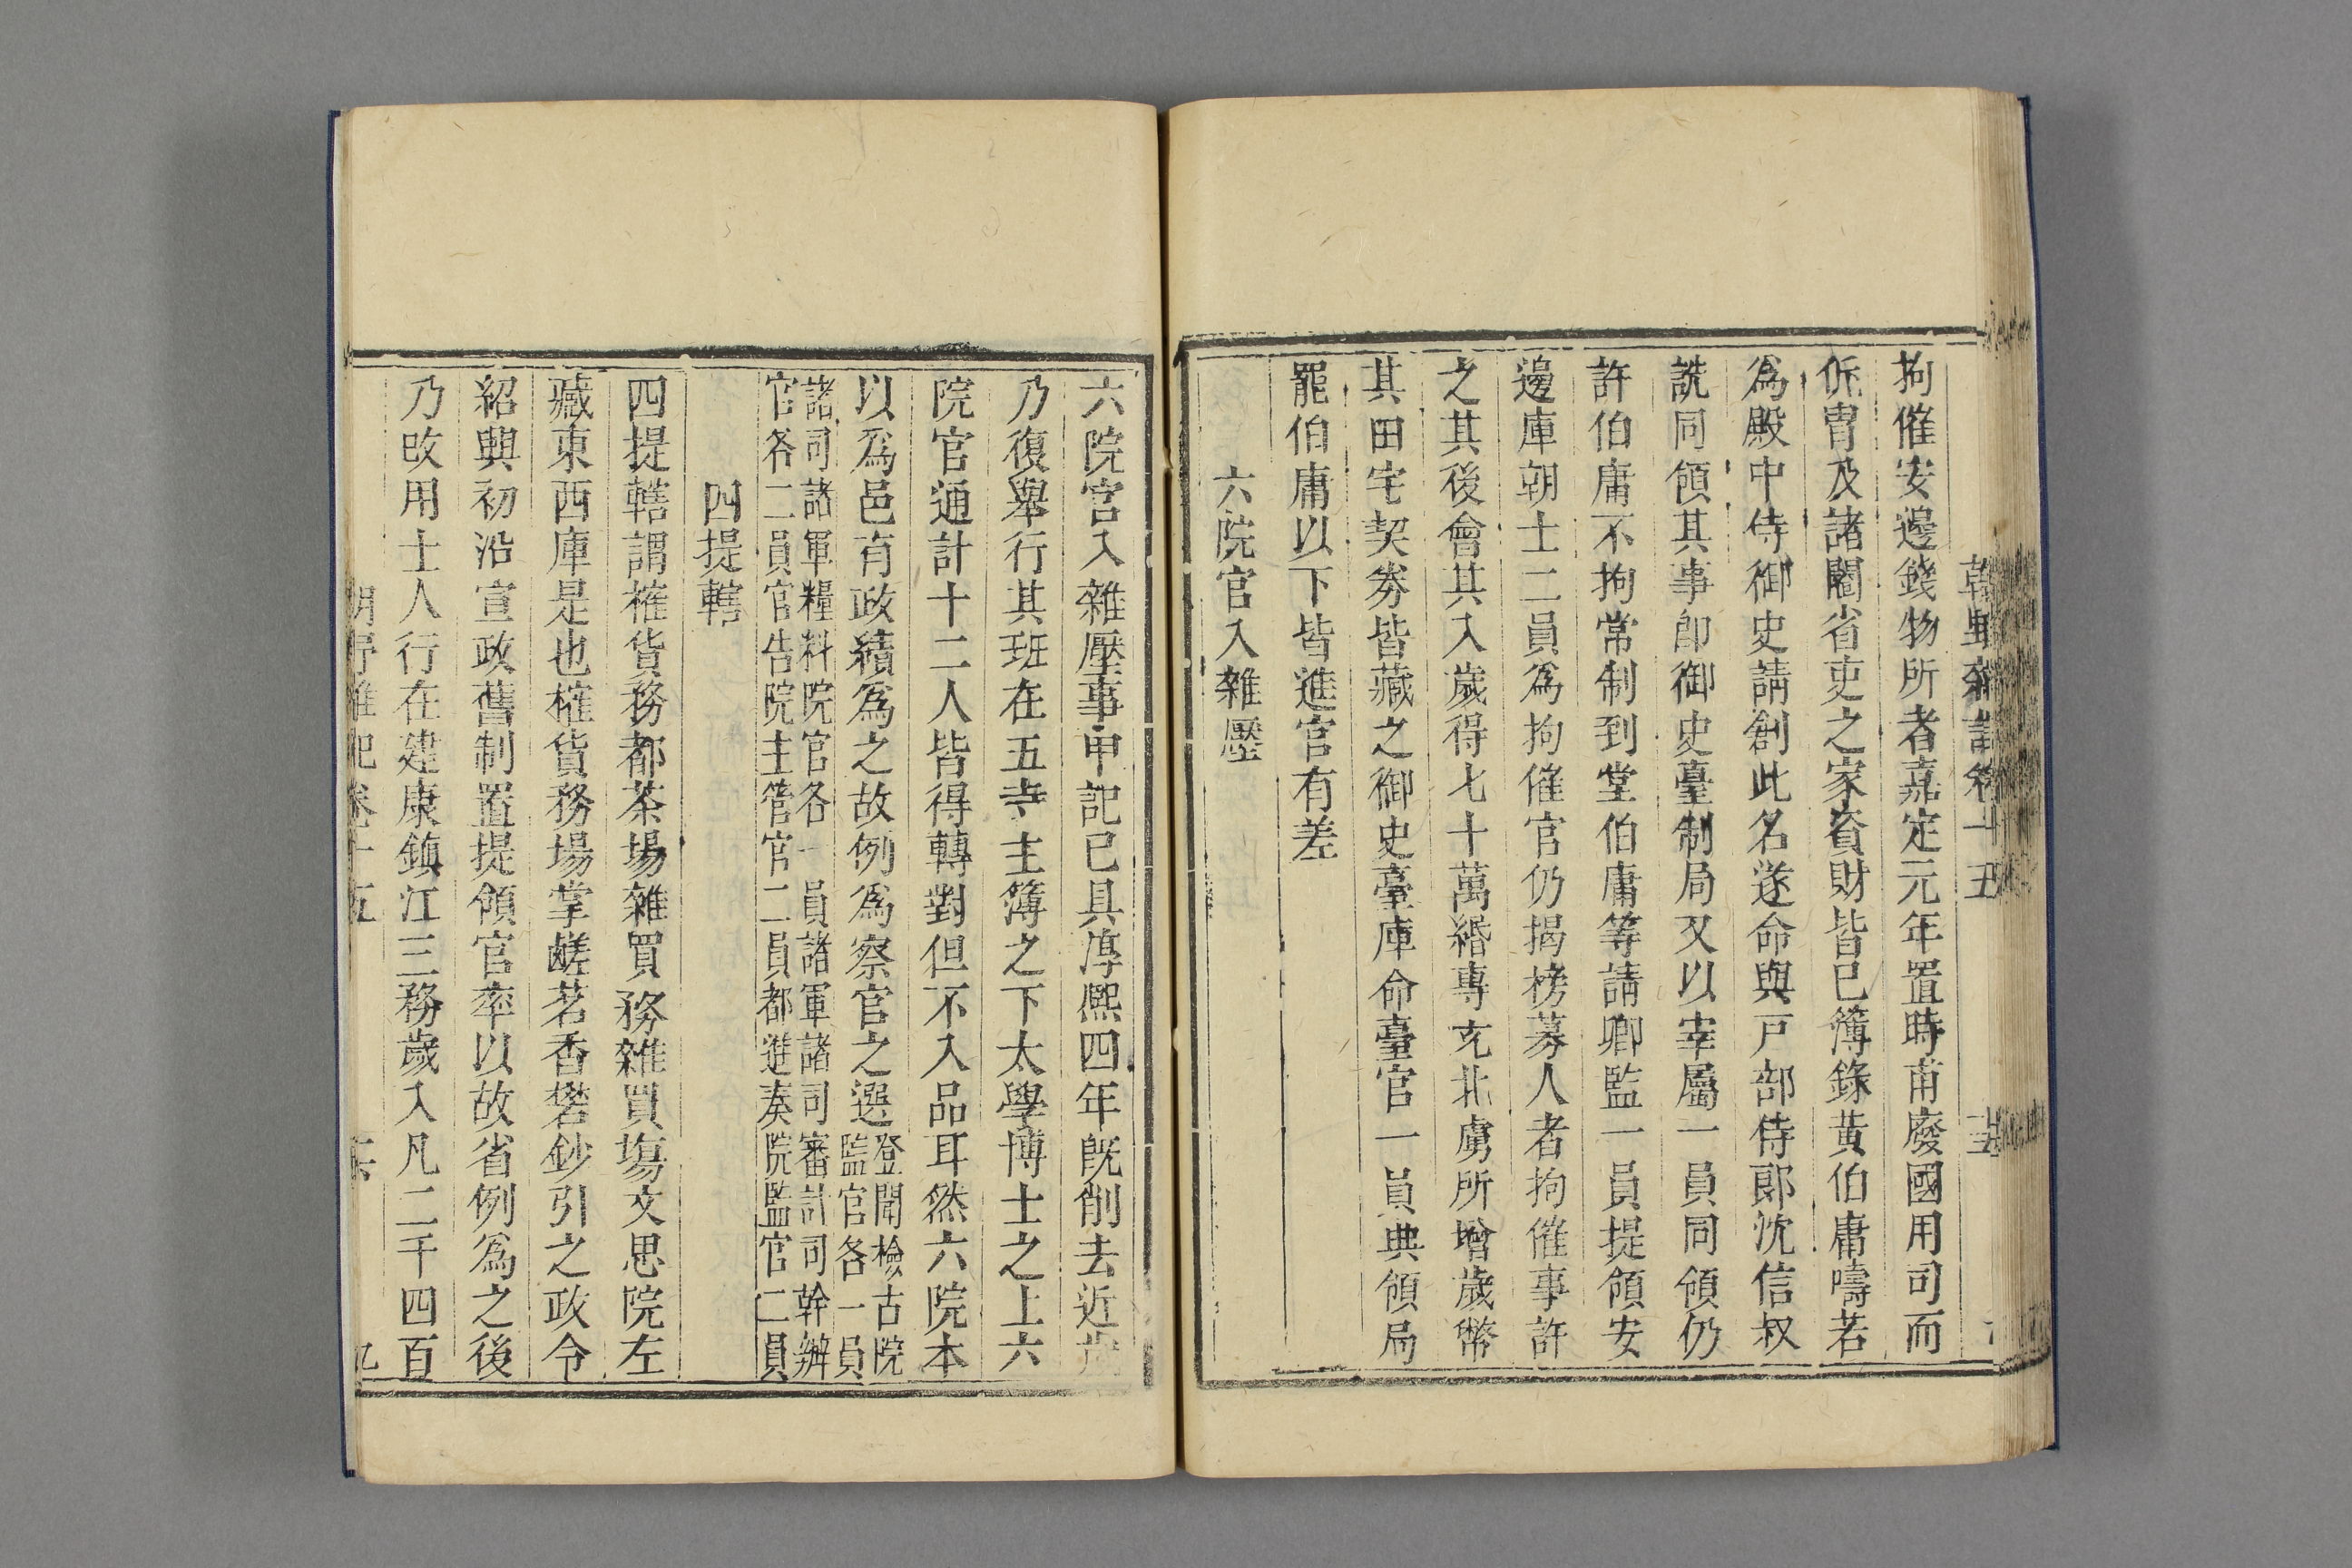 拘催安邊錢物所者嘉定元年置時甫廢國用司而
侂冑及諸閹省吏之家賓財皆已簿錄黃伯庸嚋若
為殿中侍御史請創此名遂命與戸部侍郎沈信叔
詵同領其事卽御史臺制局又以宰屬一員同領仍
許伯庸不拘常制到堂伯庸等請卿監一員提領安
邊庫朝士二員為拘催官仍揭榜募人者拘催事許
之其後會其入歲得七十萬緡專充北虜所增歲幣
其田宅契劵皆藏之御史臺庫命臺官一員典領局
罷伯庸以下皆進官有差
六院官入雜壓
六院官入雜壓事甲記已具淳熙四年旣削去近歲
乃復舉行其班在五寺主簿之下太學博士之上六
院官通計十二人皆得轉對但不入品耳然六院本
以爲邑有政績爲之故例爲察官之選
登聞檢古院
監官各一員
諸司諸軍糧料院官各一員諸軍諸司審計司幹辦
官各二員官告院主管官二員都進奏院監官二員
四提轄
四提轄謂榷貨務都茶場雜買務雜買場文思院左
藏東西庫是也榷貨務場掌鹺茗香礬鈔引之政令
紹興初沿宣政舊制置提領官率以故省例爲之後
乃改用士人行在建康鎮江三務歲入凡二千四百
朝野雜記卷十五
九